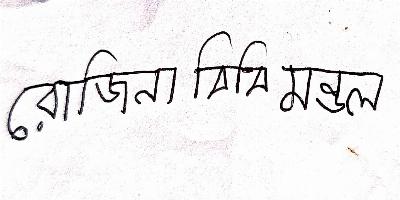 রোজিনা বিবি মন্ডল